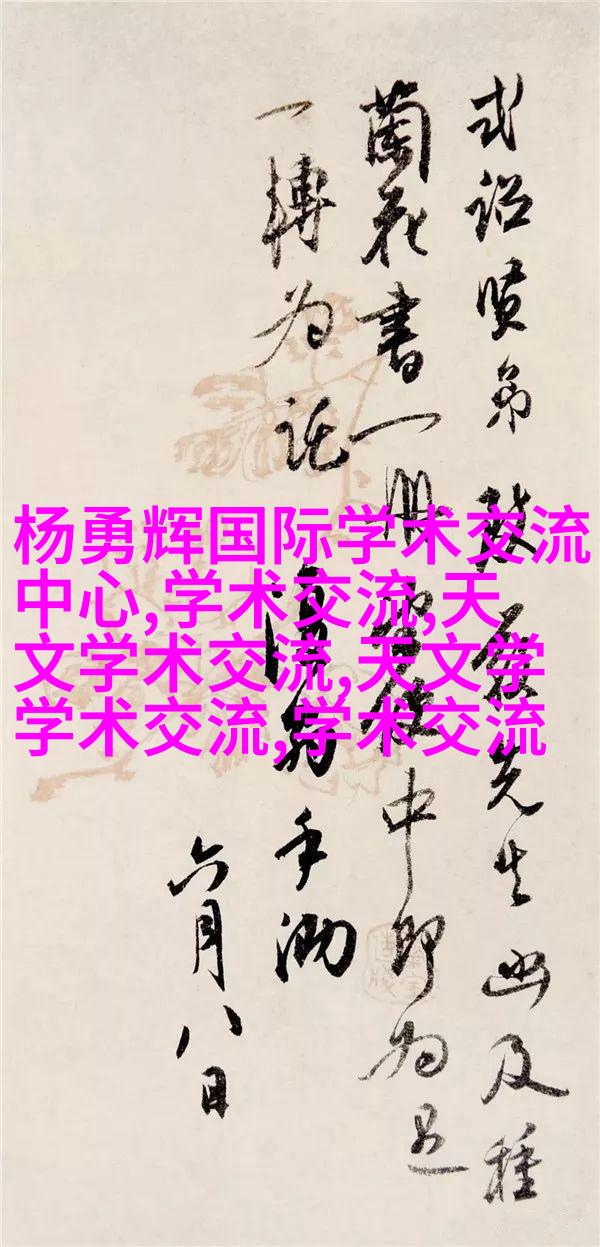 杨勇辉国际学术交流
中心,学术交流,天
文学术交流,天文学
学术交流,学术交流
式诏贤弟 先生函及種
蘭花書一册 中即为足
一轉为託 手泐
六月八日